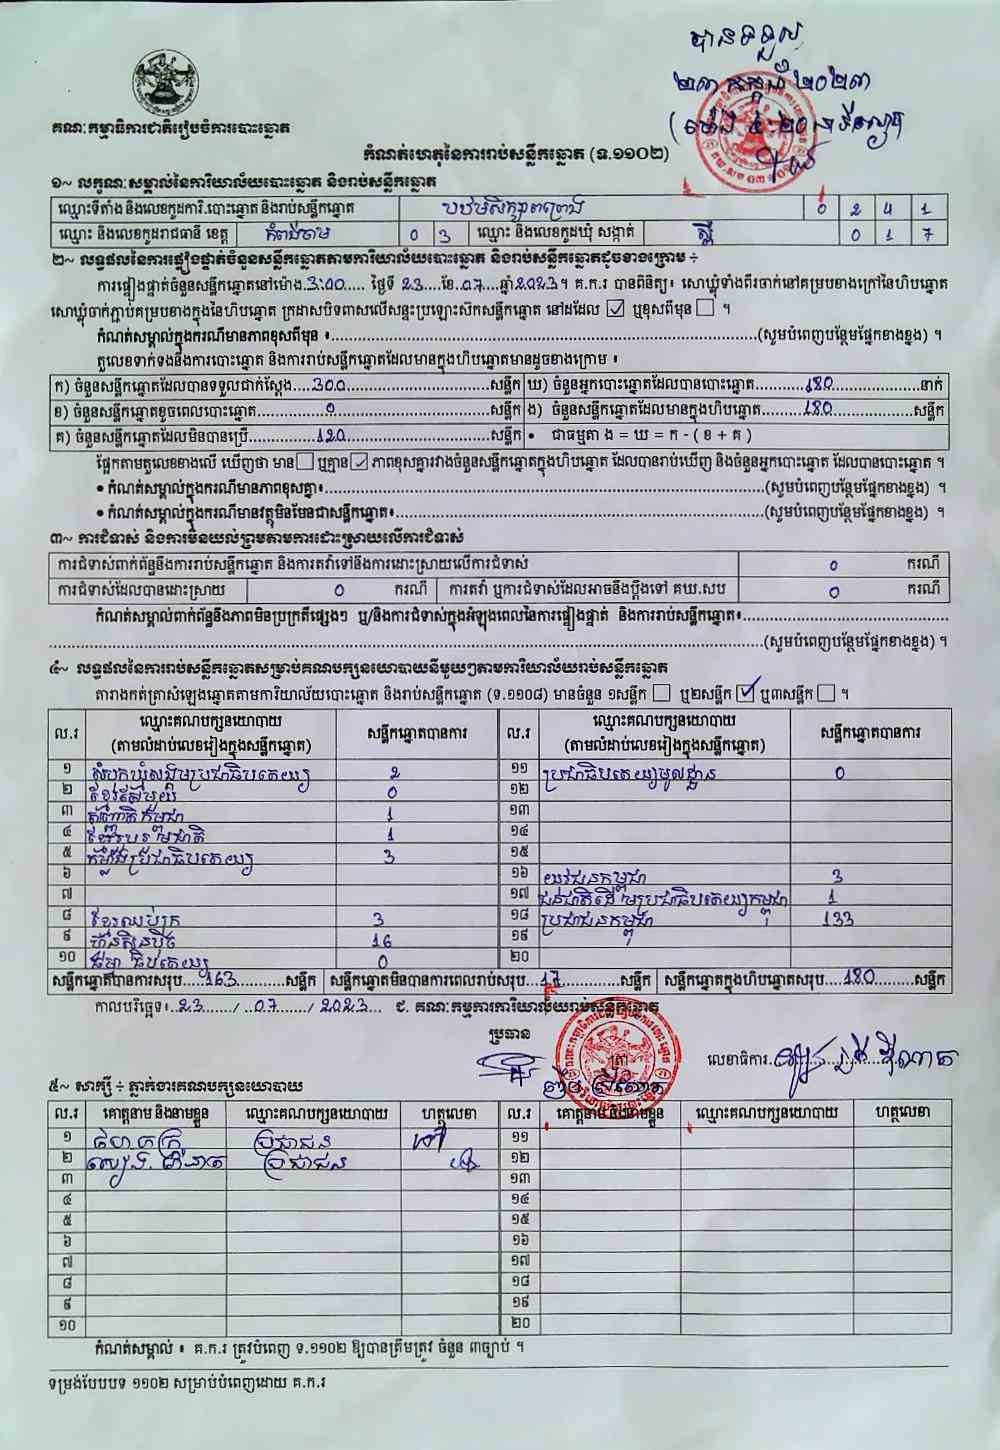 បានទទួល
២៣ កក្កដា ២០២៣
គណៈកម្មាធិការជាតិរៀបចំការបោះឆ្នោត
កំណត់ហេតុនៃការរាប់សន្លឹកឆ្នោត (ទ.១១០២)
១~ លក្ខណៈសម្គាល់នៃការិយាល័យបោះឆ្នោត និងរាប់សន្លឹកឆ្នោត
ឈ្មោះទីតាំង និងលេខកូដការិ.បោះឆ្នោត និងរាប់សន្លឹកឆ្នោត 0 2 4 1
ឈ្មោះ និងលេខកូដរាជធានី ខេត្ត កំពង់ចាម 0 3 ឈ្មោះ និងលេខកូដឃុំ សង្កាត់ 0 1 7
២~ លទ្ធផលនៃការផ្ទៀងផ្ទាត់ចំនួនសន្លឹកឆ្នោតតាមការិយាល័យបោះឆ្នោត និងរាប់សន្លឹកឆ្នោតដូចខាងក្រោម ÷
ការផ្ទៀងផ្ទាត់ចំនួនសន្លឹកឆ្នោតនៅម៉ោង.3:00..... ថ្ងៃទី 23....ខែ.07....ឆ្នាំ2023។ គ.ក.រ បានពិនិត្យ៖ សោឃ្លុំទាំងពីរចាក់នៅគម្របខាងក្រៅនៃហិបឆ្នោត
សោឃ្លុំចាក់ភ្ជាប់គម្របខាងក្នុងនៃហិបឆ្នោត ក្រដាសបិទពាសលើសន្ទះប្រឡោះស៊កសន្លឹកឆ្នោត នៅដដែល ☑ ឬខុសពីមុន ☐ ។
កំណត់សម្គាល់ក្នុងករណីមានភាពខុសពីមុន ៖..........(សូមបំពេញបន្ថែមផ្នែកខាងខ្នង) ។
តួលេខទាក់ទងនឹងការបោះឆ្នោត និងការរាប់សន្លឹកឆ្នោតដែលមានក្នុងហិបឆ្នោតមានដូចខាងក្រោម ៖
ក) ចំនួនសន្លឹកឆ្នោតដែលបានទទួលជាក់ស្តែង....300..........សន្លឹក ឃ) ចំនួនអ្នកបោះឆ្នោតដែលបានបោះឆ្នោត..........180..........នាក់
ខ) ចំនួនសន្លឹកឆ្នោតខូចពេលបោះឆ្នោត..........0..........សន្លឹក ង) ចំនួនសន្លឹកឆ្នោតដែលមានក្នុងហិបឆ្នោត.........180..........សន្លឹក
គ) ចំនួនសន្លឹកឆ្នោតដែលមិនបានប្រើ..........120..........សន្លឹក • ជាធម្មតា ង = ឃ = ក - ( ខ + គ )
ផ្អែកតាមតួលេខខាងលើ ឃើញថា មាន ☐ ឬគ្មាន ☑ ភាពខុសគ្នារវាងចំនួនសន្លឹកឆ្នោតក្នុងហិបឆ្នោត ដែលបានរាប់ឃើញ និងចំនួនអ្នកបោះឆ្នោត ដែលបានបោះឆ្នោត ។
• កំណត់សម្គាល់ក្នុងករណីមានភាពខុសគ្នា៖..........(សូមបំពេញបន្ថែមផ្នែកខាងខ្នង) ។
• កំណត់សម្គាល់ក្នុងករណីមានវត្ថុមិនមែនជាសន្លឹកឆ្នោត៖..........(សូមបំពេញបន្ថែមផ្នែកខាងខ្នង) ។
៣~ ការជំទាស់ និងការមិនយល់ព្រមតាមការដោះស្រាយលើការជំទាស់
ការជំទាស់ពាក់ព័ន្ធនឹងការរាប់សន្លឹកឆ្នោត និងការតវ៉ាទៅនឹងការដោះស្រាយលើការជំទាស់ 0 ករណី
ការជំទាស់ដែលបានដោះស្រាយ 0 ករណី ការតវ៉ា ឬការជំទាស់ដែលអាចនឹងប្តឹងទៅ គឃ.សប 0 ករណី
កំណត់សម្គាល់ពាក់ព័ន្ធនឹងភាពមិនប្រក្រតីផ្សេងៗ ឬ/និងការជំទាស់ក្នុងអំឡុងពេលនៃការផ្ទៀងផ្ទាត់ និងការរាប់សន្លឹកឆ្នោត៖..........
..........(សូមបំពេញបន្ថែមផ្នែកខាងខ្នង) ។
៤~ លទ្ធផលនៃការរាប់សន្លឹកឆ្នោតសម្រាប់គណបក្សនយោបាយនីមួយៗតាមការិយាល័យរាប់សន្លឹកឆ្នោត
តារាងកត់ត្រាសំឡេងឆ្នោតតាមការិយាល័យបោះឆ្នោត និងរាប់សន្លឹកឆ្នោត (ទ.១១០៨) មានចំនួន ១សន្លឹក ☐ ឬ២សន្លឹក ☑ ឬ៣សន្លឹក ☐ ។
ល.រ ឈ្មោះគណបក្សនយោបាយ (តាមលំដាប់លេខរៀងក្នុងសន្លឹកឆ្នោត) សន្លឹកឆ្នោតបានការ ល.រ ឈ្មោះគណបក្សនយោបាយ (តាមលំដាប់លេខរៀងក្នុងសន្លឹកឆ្នោត) សន្លឹកឆ្នោតបានការ
១ សំបុកឃ្មុំសង្គមប្រជាធិបតេយ្យ 2 ១១ ប្រជាធិបតេយ្យមូលដ្ឋាន 0
២ ខ្មែរតែមួយ 0 ១២
៣ កម្ពុជា 1 ១៣
៤ 1 ១៤
៥ កម្លាំងប្រជាធិបតេយ្យ 3 ១៥
៦ ១៦ យុវជនកម្ពុជា 3
៧ ១៧ ជនជាតិដើមប្រជាធិបតេយ្យកម្ពុជា 1
៨ ខ្មែរឈប់ក្រ 3 ១៨ ប្រជាជនកម្ពុជា 133
៩ ហ៊្វុនស៊ិនប៉ិច 16 ១៩
១០ ធម្មាធិបតេយ្យ 0 ២០
សន្លឹកឆ្នោតបានការសរុប.....163..........សន្លឹក សន្លឹកឆ្នោតមិនបានការពេលរាប់សរុប...17..........សន្លឹក សន្លឹកឆ្នោតក្នុងហិបឆ្នោតសរុប....180........សន្លឹក
កាលបរិច្ឆេទ៖..23......./ ..07....... / 2023... ជ. គណៈកម្មការការិយាល័យរាប់សន្លឹកឆ្នោត
ប្រធាន
លេខាធិការ
៥~ សាក្សី ÷ ភ្នាក់ងារគណបក្សនយោបាយ
ល.រ គោត្តនាម និងនាមខ្លួន ឈ្មោះគណបក្សនយោបាយ ហត្ថលេខា ល.រ គោត្តនាម និងនាមខ្លួន ឈ្មោះគណបក្សនយោបាយ ហត្ថលេខា
១ ប្រជាជន ១១
២ ប្រជាជន ១២
៣ ១៣
៤ ១៤
៥ ១៥
៦ ១៦
៧ ១៧
៨ ១៨
៩ ១៩
១០ ២០
កំណត់សម្គាល់ ៖ គ.ក.រ ត្រូវបំពេញ ទ.១១០២ ឱ្យបានត្រឹមត្រូវ ចំនួន ៣ច្បាប់ ។
ទម្រង់បែបបទ ១១០២ សម្រាប់បំពេញដោយ គ.ក.រ